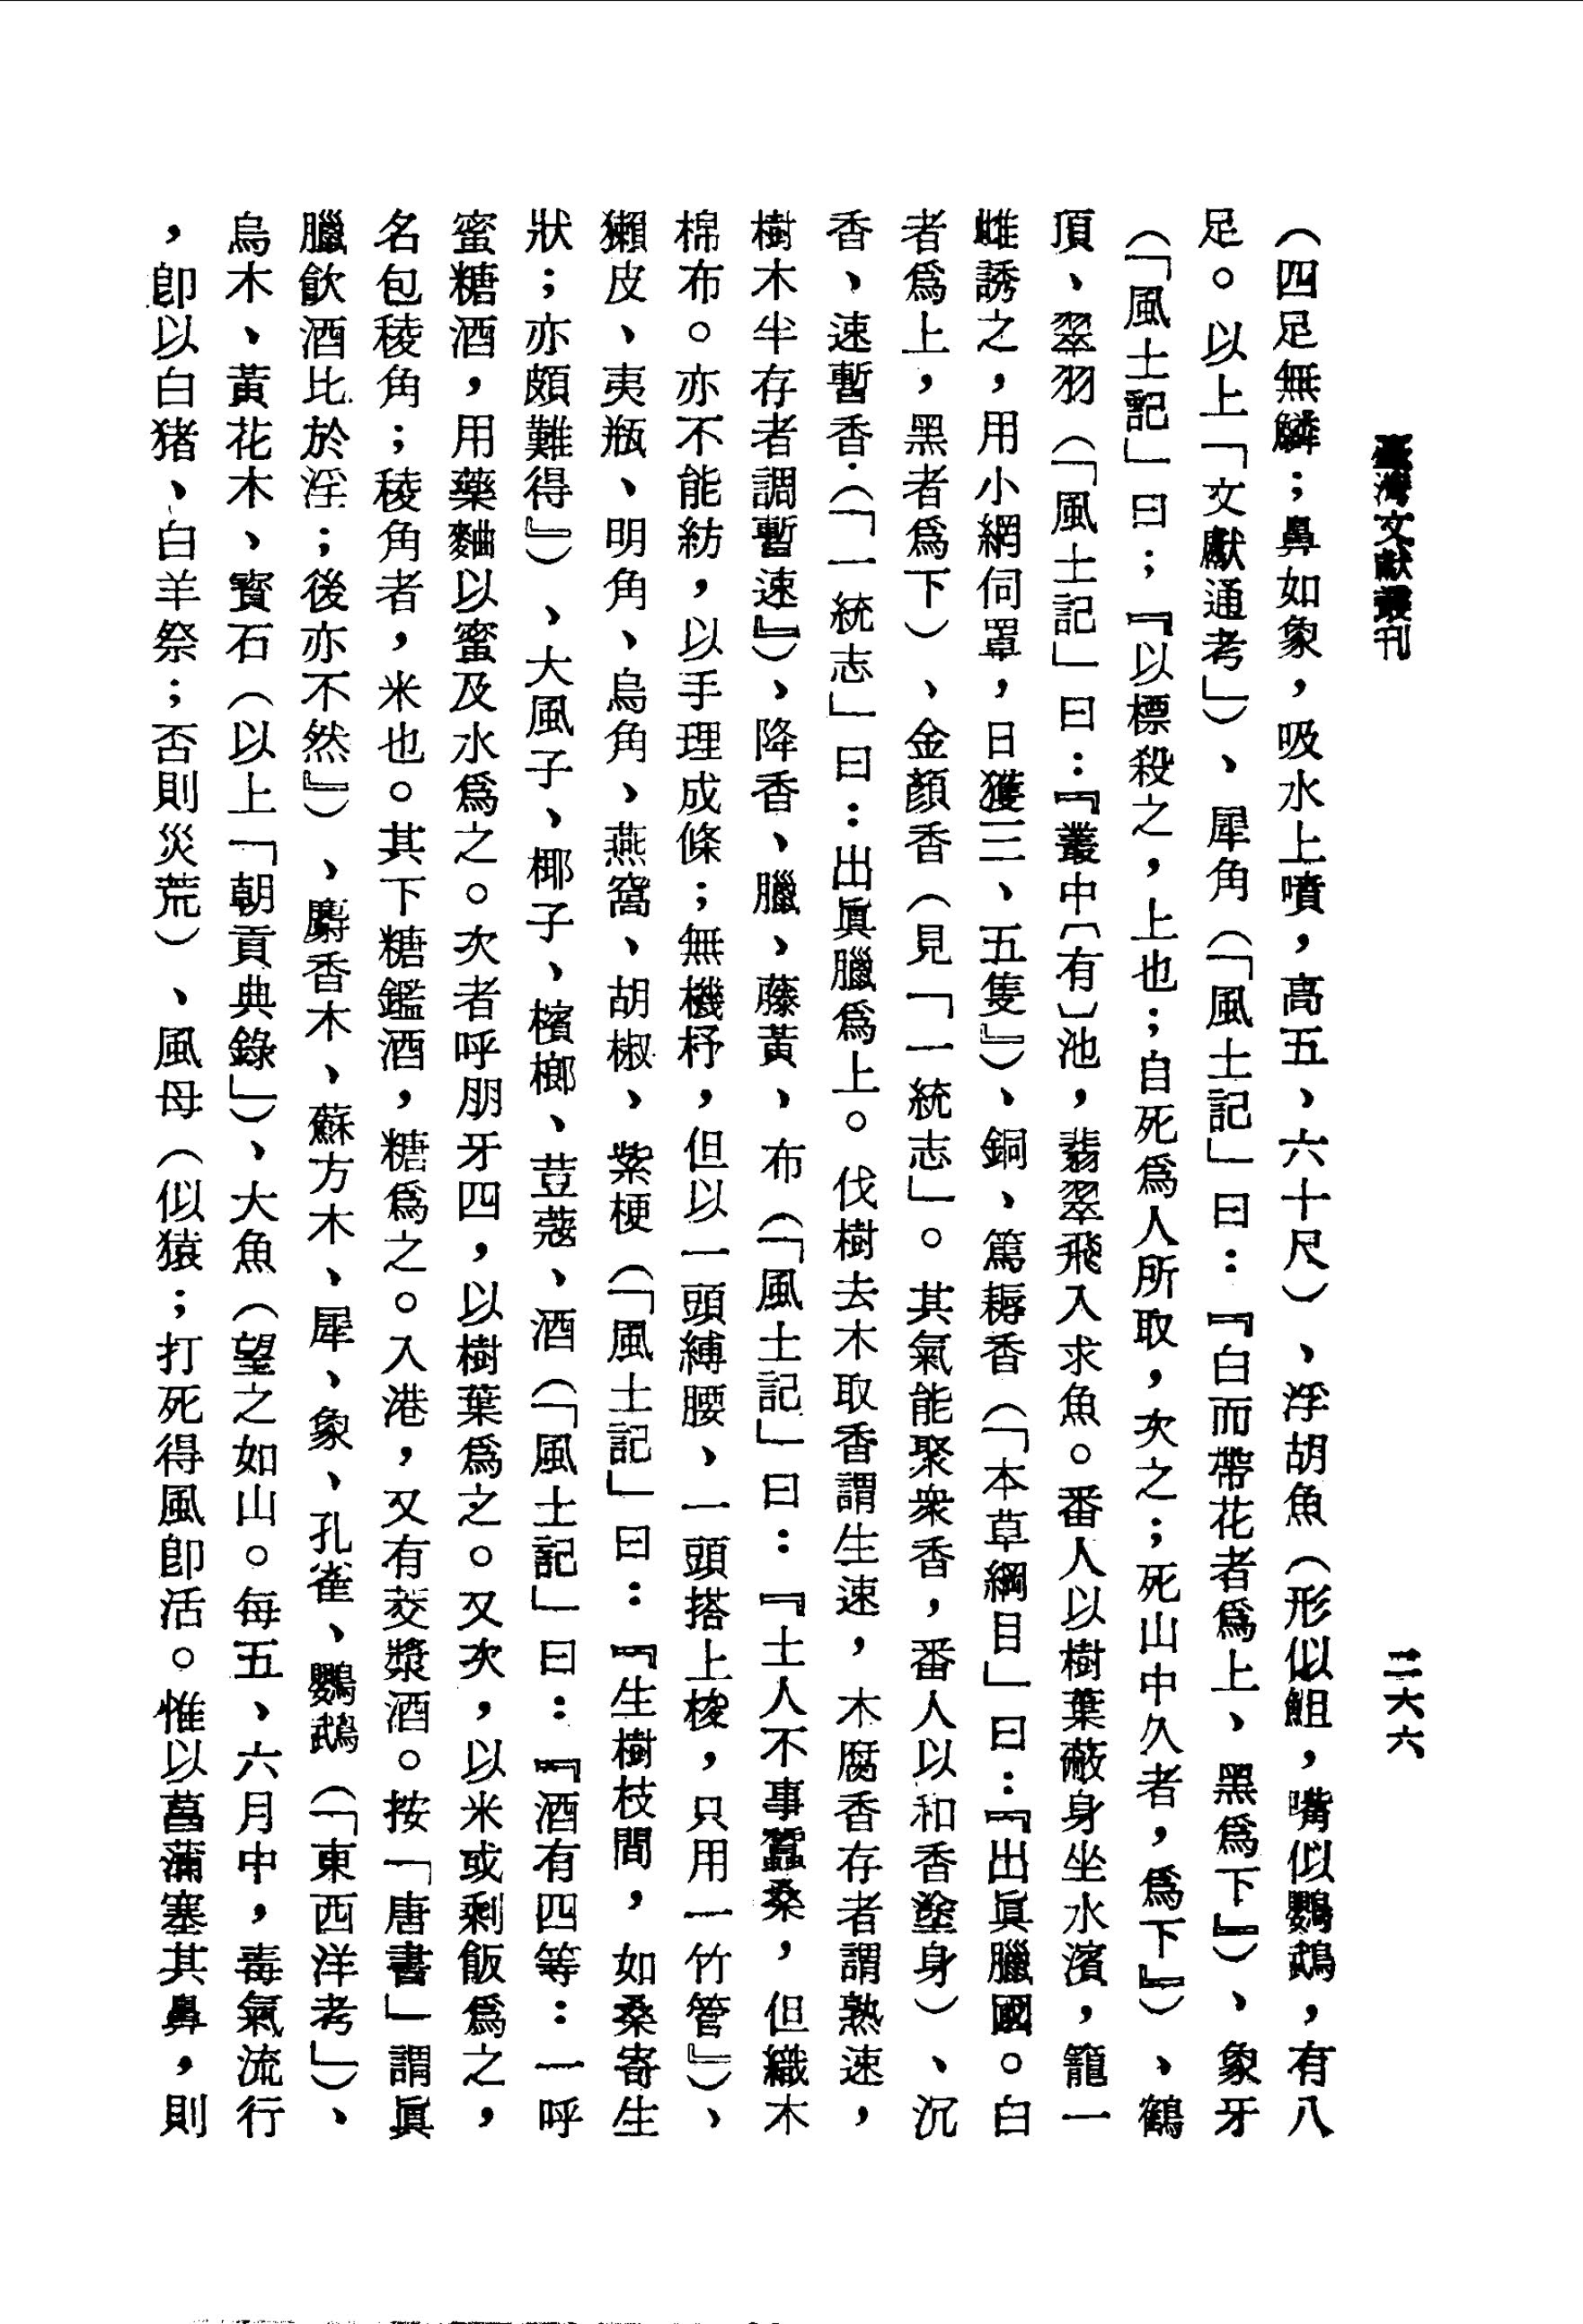 臺灣文獻叢刊
二六六
（四足無鱗；鼻如象，吸水上噴，高五、六十尺）、浮胡魚（形似䱉，嘴似鸚鵡，有八
足。以上「文獻通考」）、犀角（「風土記」曰：『白而帶花者爲上、黑爲下』）、象牙
（「風土記」曰；『以標殺之，上也；自死爲人所取，次之；死山中久者，爲下』）、鶴
頂、翠羽（「風土記」曰：『叢中〔有〕池，翡翠飛入求魚。番人以樹葉蔽身坐水濱，籠一
雌誘之，用小網伺罩，日獲三、五隻』）、銅、篤耨香（「本草綱目」曰：『出眞臘國。白
者爲上，黑者爲下）、金顏香（見「一統志」。其氣能聚衆香，番人以和香塗身）、沉
香、速暫香（「一統志」曰：出眞臘爲上。伐樹去木取香謂生速，木腐香存者謂熟速，
樹木半存者調暫速』）、降香、臘、藤黃、布（「風土記」曰：『土人不事蠶桑，但織木
棉布。亦不能紡，以手理成條；無機杼，但以一頭縛腰、一頭搭上梭，只用一竹管』）、
獺皮、夷瓶、明角、烏角、燕窩、胡椒、紫梗（「風土記」曰：『生樹枝間，如桑寄生
狀；亦頗難得』）、大風子、椰子、檳榔、荳蔻、酒（「風土記」曰：『酒有四等：一呼
蜜糖酒，用藥麯以蜜及水爲之。次者呼朋牙四，以樹葉爲之。又次，以米或剩飯爲之，
名包稜角；稜角者，米也。其下糖鑑酒，糖爲之。入港，又有茭漿酒。按「唐書」謂眞
臘飲酒比於淫；後亦不然』）、麝香木、蘇方木、犀、象、孔雀、鸚鵡（「東西洋考」）、
烏木、黃花木、寳石（以上「朝貢典錄」）、大魚（望之如山。每五、六月中，毒氣流行
，卽以白猪、白羊祭；否則災荒）、風母（似猿；打死得風卽活。惟以菖蒲塞其鼻，則